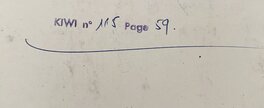 KIWI n° 115 Page 59.